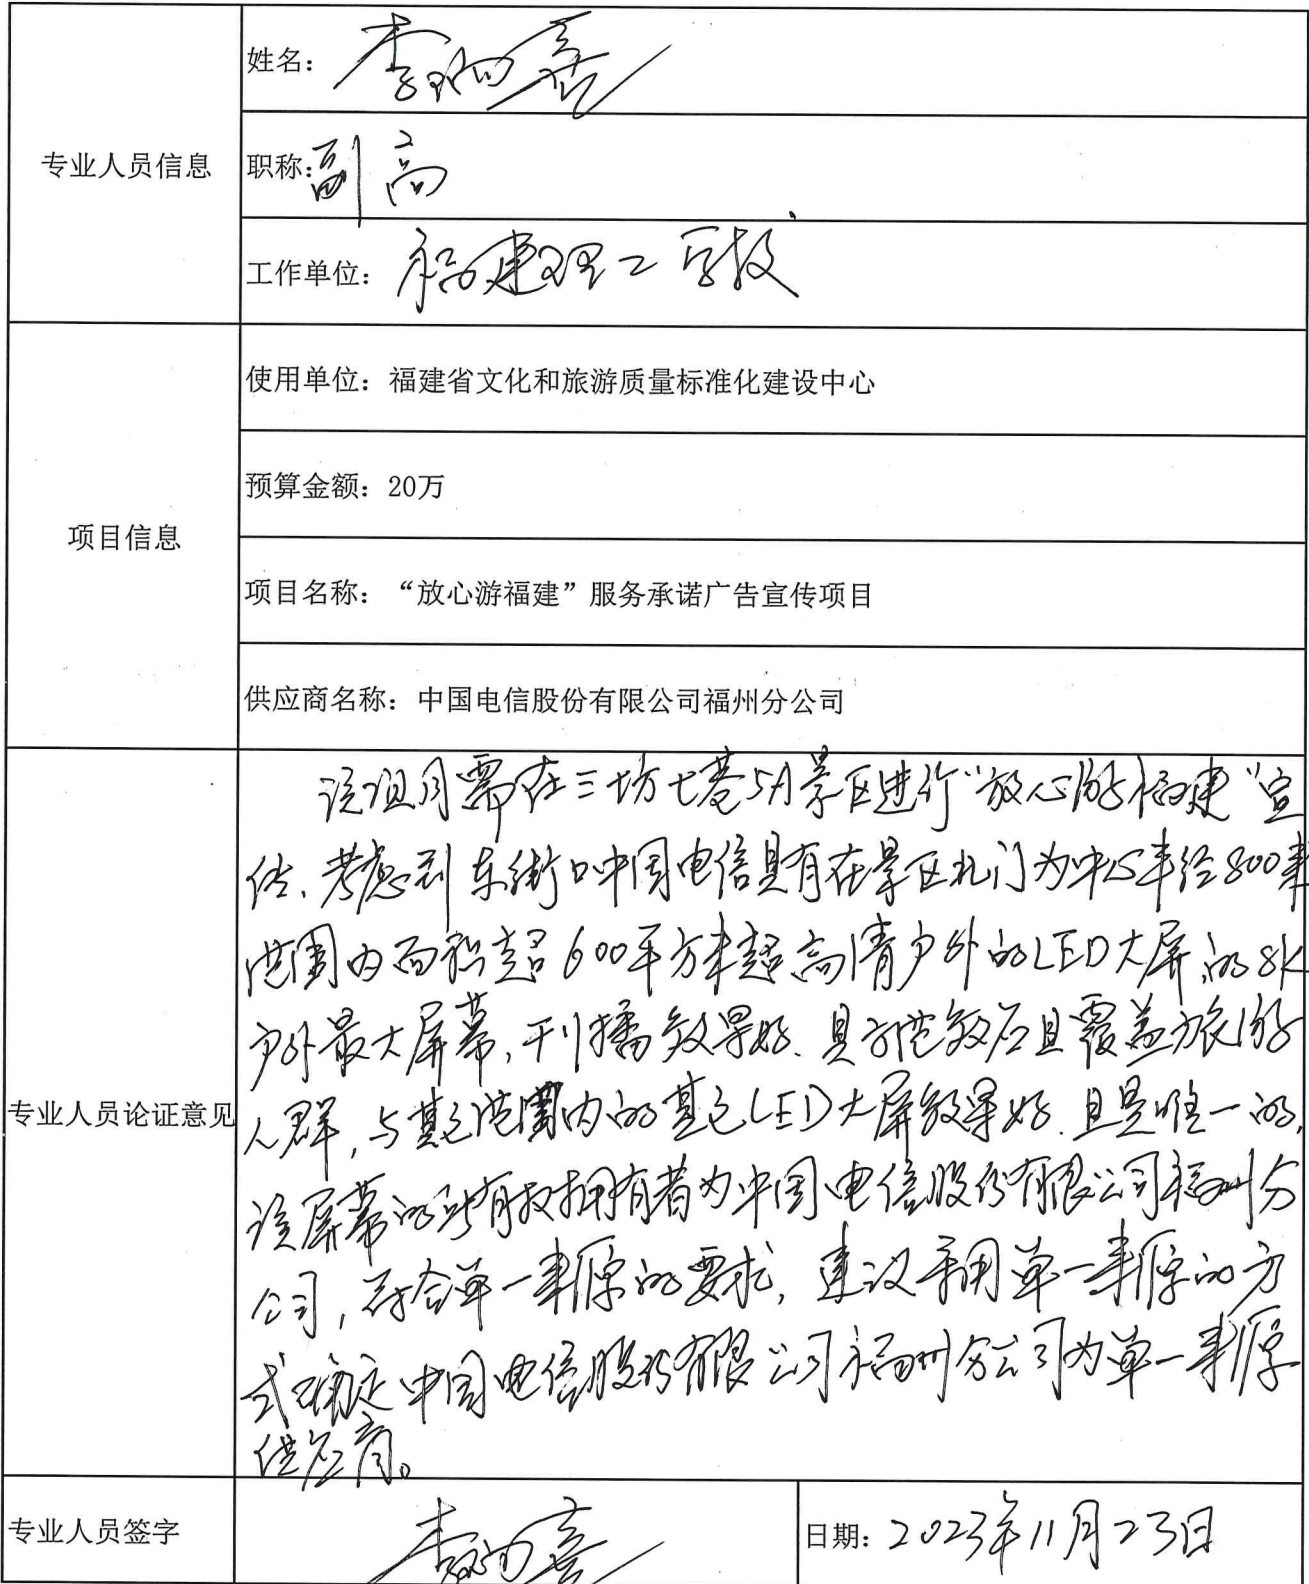 专业人员信息
姓名：李
职称：副高
工作单位：福建理工学校
项目信息
使用单位：福建省文化和旅游质量标准化建设中心
预算金额：20万
项目名称：“放心游福建”服务承诺广告宣传项目
供应商名称：中国电信股份有限公司福州分公司
专业人员论证意见
该项目需在三坊七巷5A景区进行“放心游福建”宣
传、考虑到东街口中国电信具有在景区北门为中心半径800米
范围内面积超600平方米超高清户外的LED大屏，的8K
户外最大屏幕，刊播效果好、具示范效应且覆盖旅游
人群，与其它范围内的其它LED大屏效果好.且是唯一的，
该屏幕的所有权拥有者为中国电信股份有限公司福州分
公司，符合单一来源的要求，建议采用单一来源的方
式确定中国电信股份有限公司福州分公司为单一来源
供应商。
专业人员签字
李
日期：2023年11月23日